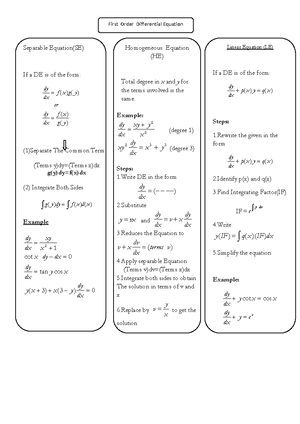 First Order Differential Equation
Separable Equation(SE)
If a DE is of the form
dy/dx = f(x)g(y)
or
dy/dx = f(x)/g(y)
(1)Separate The Common Term
(Terms y)dy=(Terms x)dx
g(y) dy = f(x) dx
(2) Integrate Both Sides
∫g(y)dy = ∫f(x)d(x)
Example
dy/dx = xy/(x² + 1)
cot x dy − dx = 0
dy/dx = tan y cos x
y(x + 3) + x(3 − y) dy/dx = 0
Homogeneous Equation
(HE)
Total degree in x and y for
the terms involved is the
same
Example:
dy/dx = (xy + y²)/x² (degree 1)
xy² dy/dx = x³ + y³ (degree 3)
Steps:
1.Write DE in the form
dy/dx = (− − − −)
2.Substitute
y = vx and dy/dx = v + x dv/dx
3.Reduces the Equation to
v + x dv/dx = (terms v)
4.Apply separable Equation
(Terms v)dv=(Terms x)dx
5.Integrate both sides to obtain
The solution in terms of v and
x
6.Replace by v = y/x to get the
solution
Linear Equation (LE)
If a DE is of the form:
dy/dx + p(x)y = q(x)
Steps:
1.Rewrite the given in the
form
dy/dx + p(x)y = q(x)
2.Identify p(x) and q(x)
3.Find Integrating Factor(IF)
4.Write
y(IF) = ∫q(x)(IF)dx
5.Simplify the equation
Example:
dy/dx + y cot x = cos x
dy/dx + y = eˣ